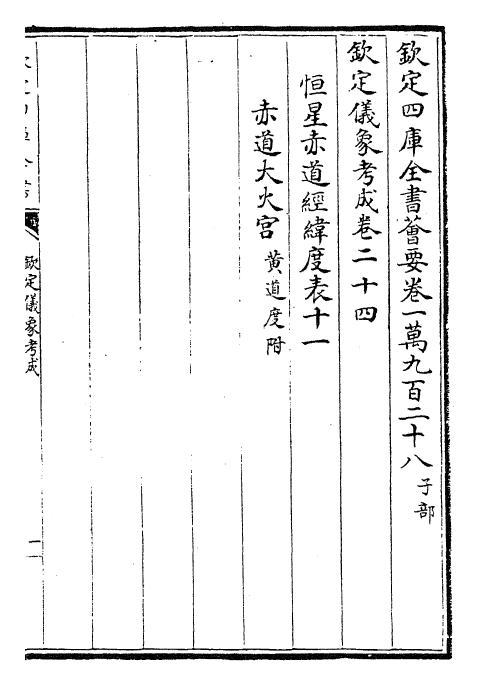 欽定四庫全書薈要卷一萬九百二十八 子部
欽定儀象考成卷二十四
恒星赤道經緯度表十一
赤道大火宫 黄道度附
欽定儀象考成
一